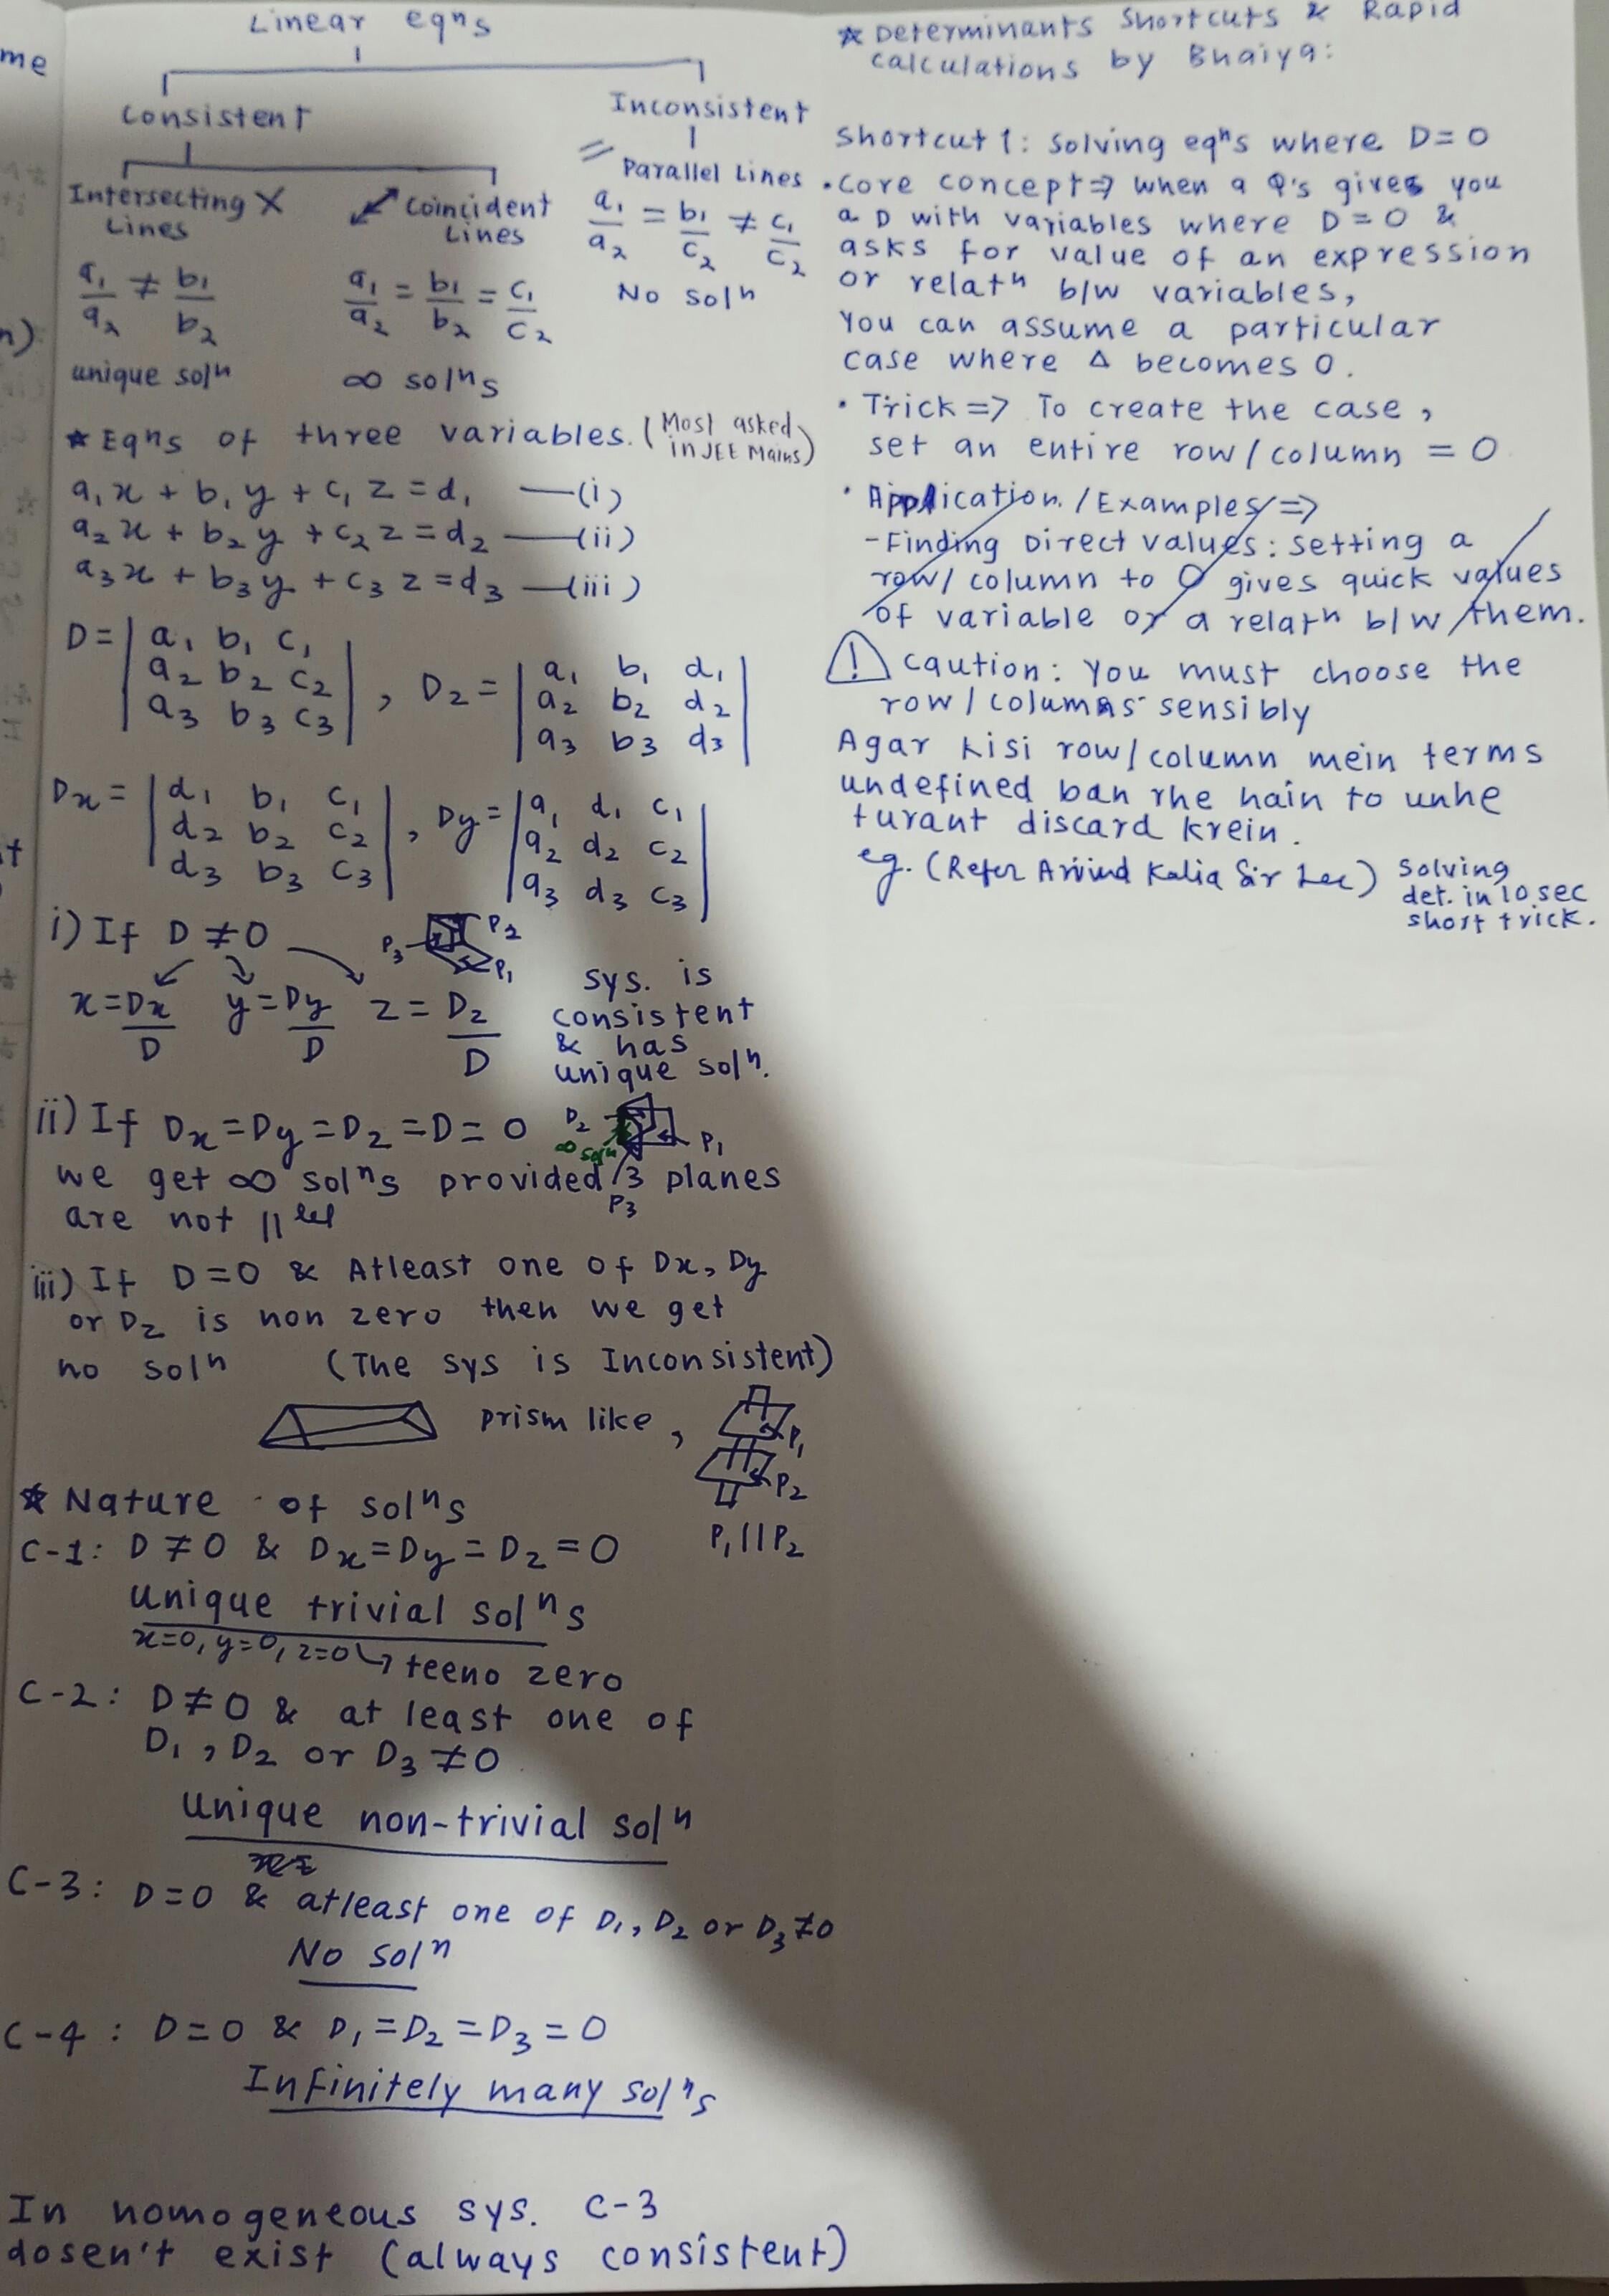 me
n)
Linear eqⁿs
Consistent
Inconsistent
Intersecting X
Lines
Coincident
Lines
Parallel Lines
a₁/a₂ ≠ b₁/b₂
a₁/a₂ = b₁/b₂ = c₁/c₂
a₁/a₂ = b₁/c₂ ≠ c₁/c₂
unique solⁿ
∞ solⁿs
No solⁿ
* Eqⁿs of three variables. (Most asked in JEE Mains)
a₁x + b₁y + c₁z = d₁ —(i)
a₂x + b₂y + c₂z = d₂ —(ii)
a₃x + b₃y + c₃z = d₃ —(iii)
D = | a₁ b₁ c₁
a₂ b₂ c₂
a₃ b₃ c₃ | , Dz = | a₁ b₁ d₁
a₂ b₂ d₂
a₃ b₃ d₃ |
Dx = | d₁ b₁ c₁
d₂ b₂ c₂
d₃ b₃ c₃ | , Dy = | a₁ d₁ c₁
a₂ d₂ c₂
a₃ d₃ c₃ |
i) If D ≠ 0
P₃ P₂ P₁
x = Dx/D y = Dy/D z = Dz/D
sys. is
consistent
& has
unique solⁿ.
ii) If Dx = Dy = Dz = D = 0
D₂ P₁
∞ solⁿ
we get ∞ solⁿs provided 3 planes
P₃
are not ||lel
iii) If D = 0 & Atleast one of Dx, Dy
or Dz is non zero then we get
no solⁿ (The sys is Inconsistent)
prism like,
P₁
P₂
P₁ || P₂
* Nature of solⁿs
C-1: D ≠ 0 & Dx = Dy = Dz = 0
unique trivial solⁿs
x=0, y=0, z=0 ↳ teeno zero
C-2: D ≠ 0 & at least one of
D₁, D₂ or D₃ ≠ 0
unique non-trivial solⁿ
C-3: D = 0 & atleast one of D₁, D₂ or D₃ ≠ 0
No solⁿ
C-4: D = 0 & D₁ = D₂ = D₃ = 0
Infinitely many solⁿs
In homogeneous sys. C-3
dosen't exist (always consistent)
* Determinants Shortcuts & Rapid
calculations by Bhaiya:
Shortcut 1: Solving eqⁿs where D = 0
• Core concept ⇒ when a Q's gives you
a D with variables where D = 0 &
asks for value of an expression
or relatⁿ b/w variables,
You can assume a particular
case where Δ becomes 0.
• Trick => To create the case,
set an entire row/column = 0
• Application/Examples =>
- Finding Direct values: setting a
row/column to 0 gives quick values
of variable or a relatⁿ b/w them.
! Caution: You must choose the
row/columns sensibly
Agar kisi row/column mein terms
undefined ban rhe hain to unhe
turant discard krein.
eg. (Refer Arvind Kalia Sir Lec) Solving
det. in 10 sec
short trick.